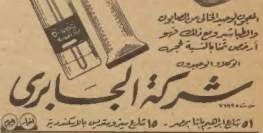 المعجون الوحيد الخالي من الصابون
والطباشير ومع ذلك فهو
أرخص ثمنا بالنسبة لحجمه
الوكلاء الوحيدون
شركة الجابرى
٥١ شارع ابراهيم باشا بمصر - ١٥ شارع سيزوستريس بالاسكندرية